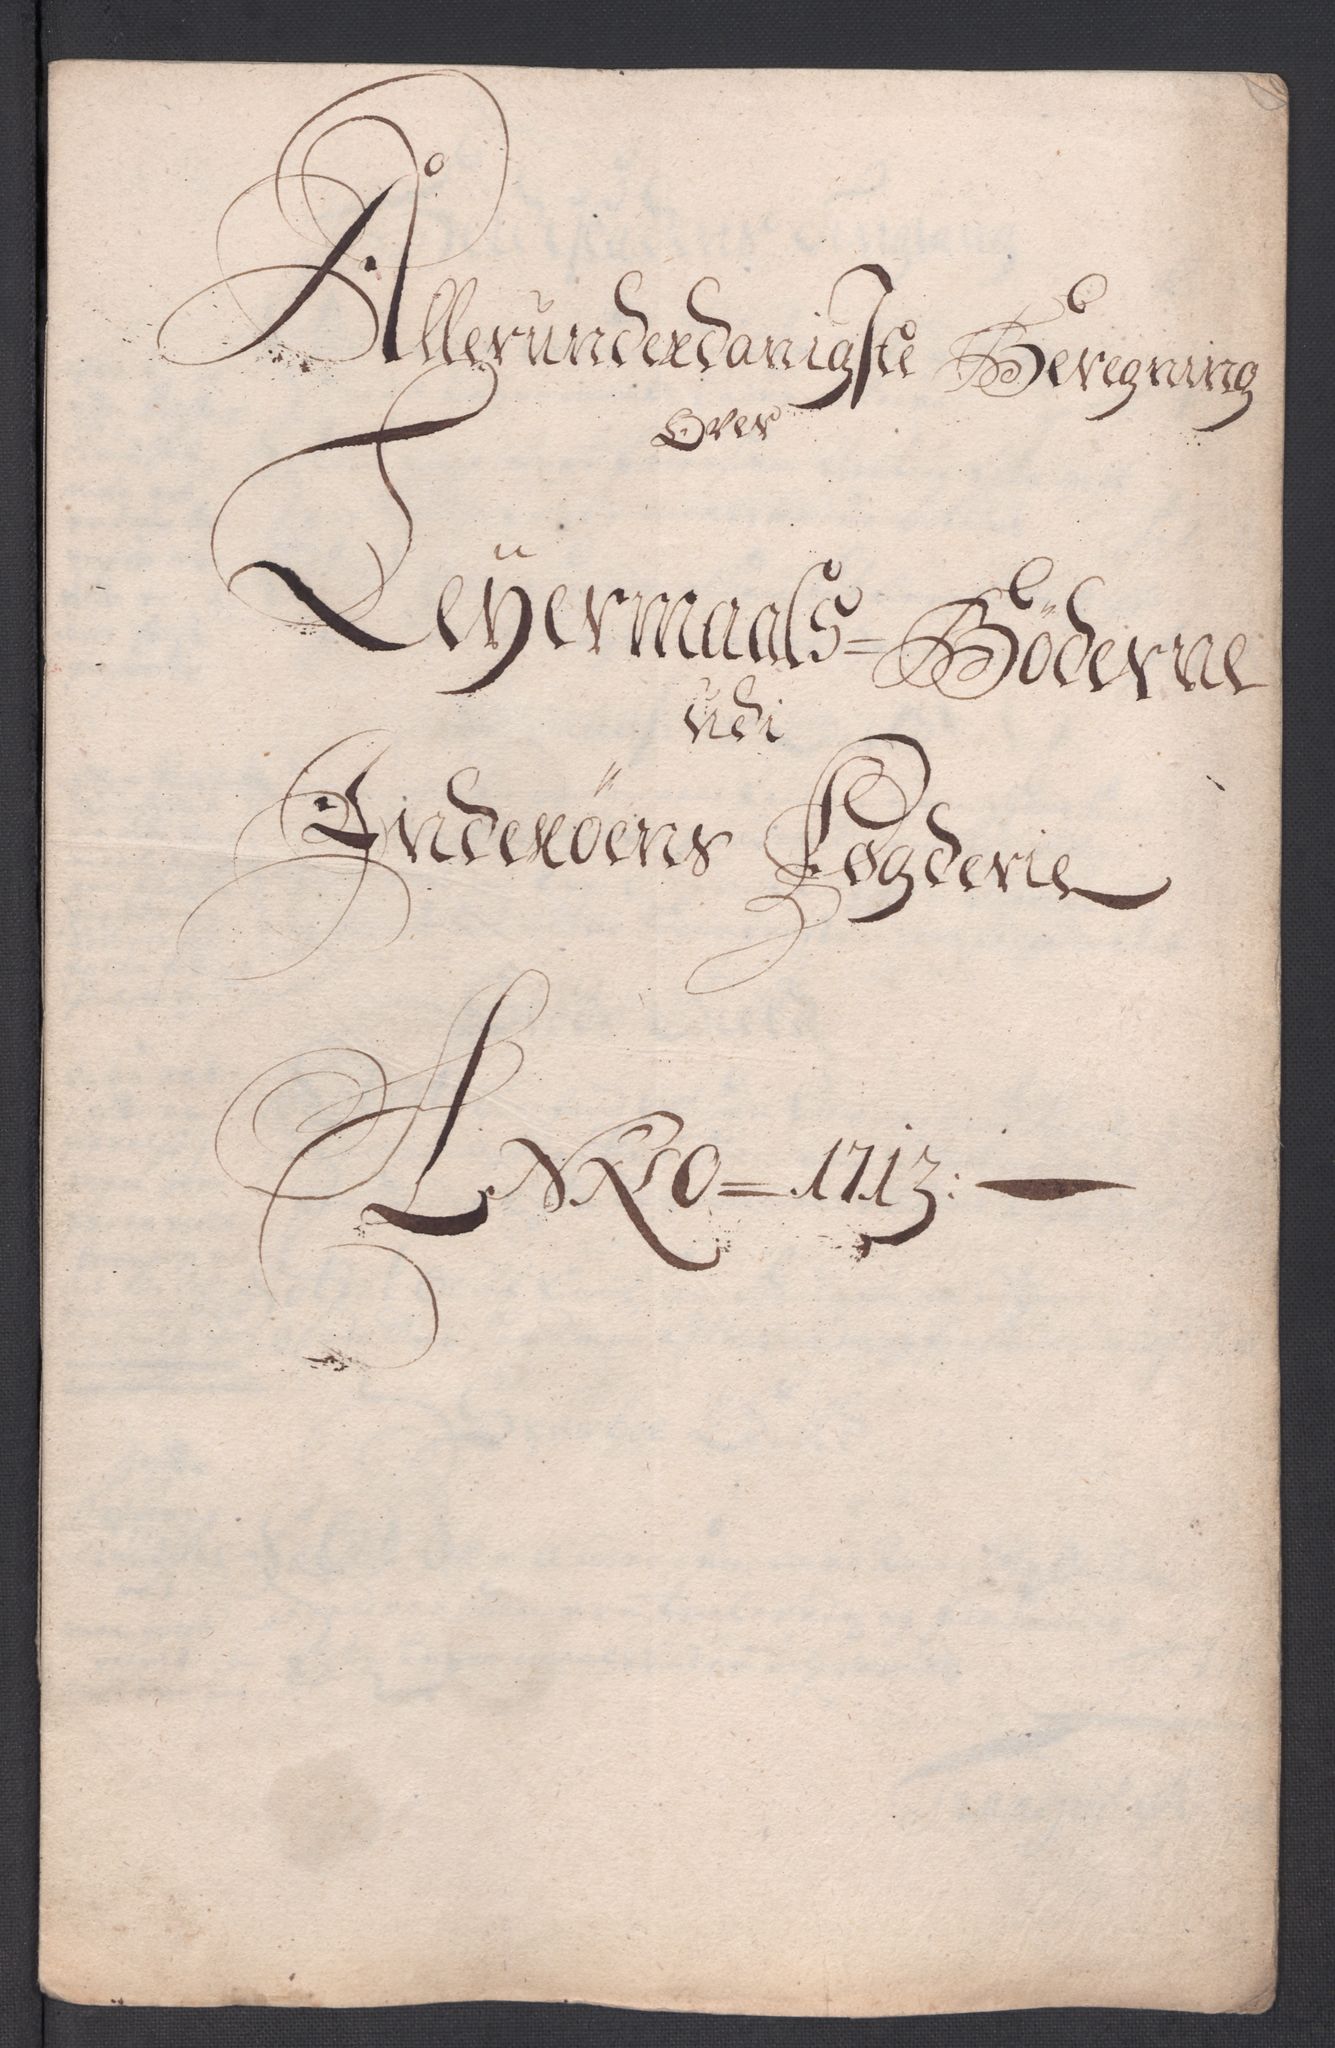 Allerunderdanigste Beregning
Over
Leÿermaals=Böderne
udi
Inderöens Fogderie
ANNO = 1713: